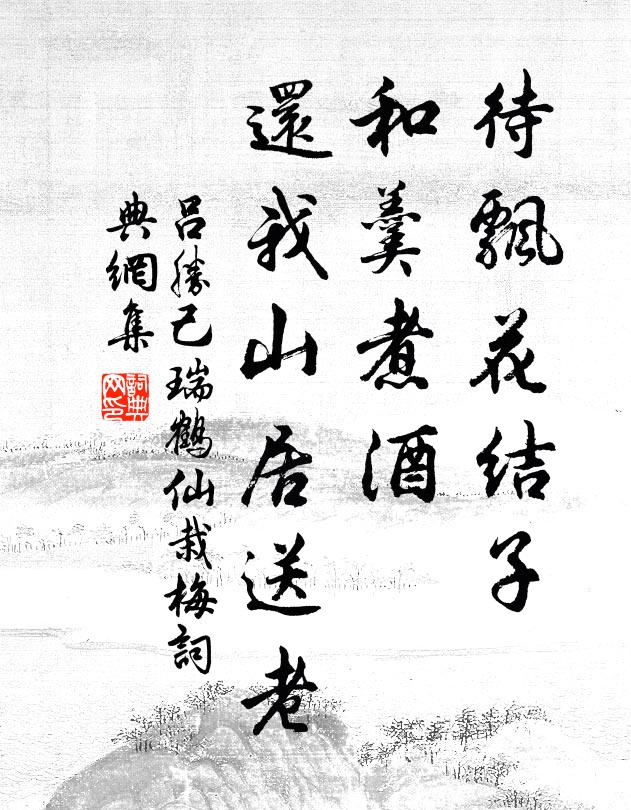 待飄花结子
和羹煮酒
還我山居送老
吕勝己瑞鶴仙栽梅詞
典網集
詞典
网印